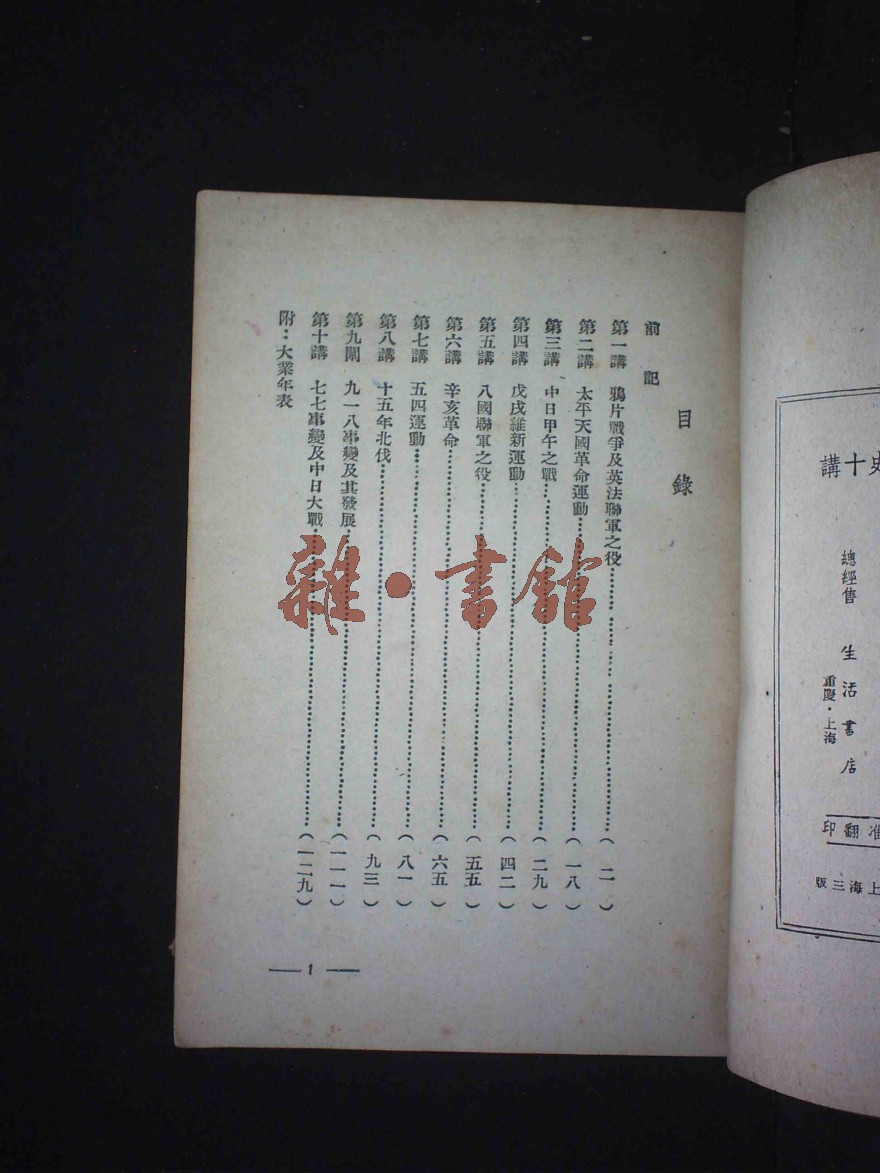 目錄
前記
第一講 鴉片戰爭及英法聯軍之役……（二）
第二講 太平天國革命運動……（一八）
第三講 中日甲午之戰……（二九）
第四講 戊戌維新運動……（四二）
第五講 八國聯軍之役……（五五）
第六講 辛亥革命……（六五）
第七講 五四運動……（八一）
第八講 十五年北伐……（九三）
第九閘 九一八事變及其發展……（一一一）
第十講 七七事變及中日大戰……（一二九）
附：大業年表
— 1 —
史十講
總經售 生活書店
重慶·上海
准翻印
上海三版
雜·書館